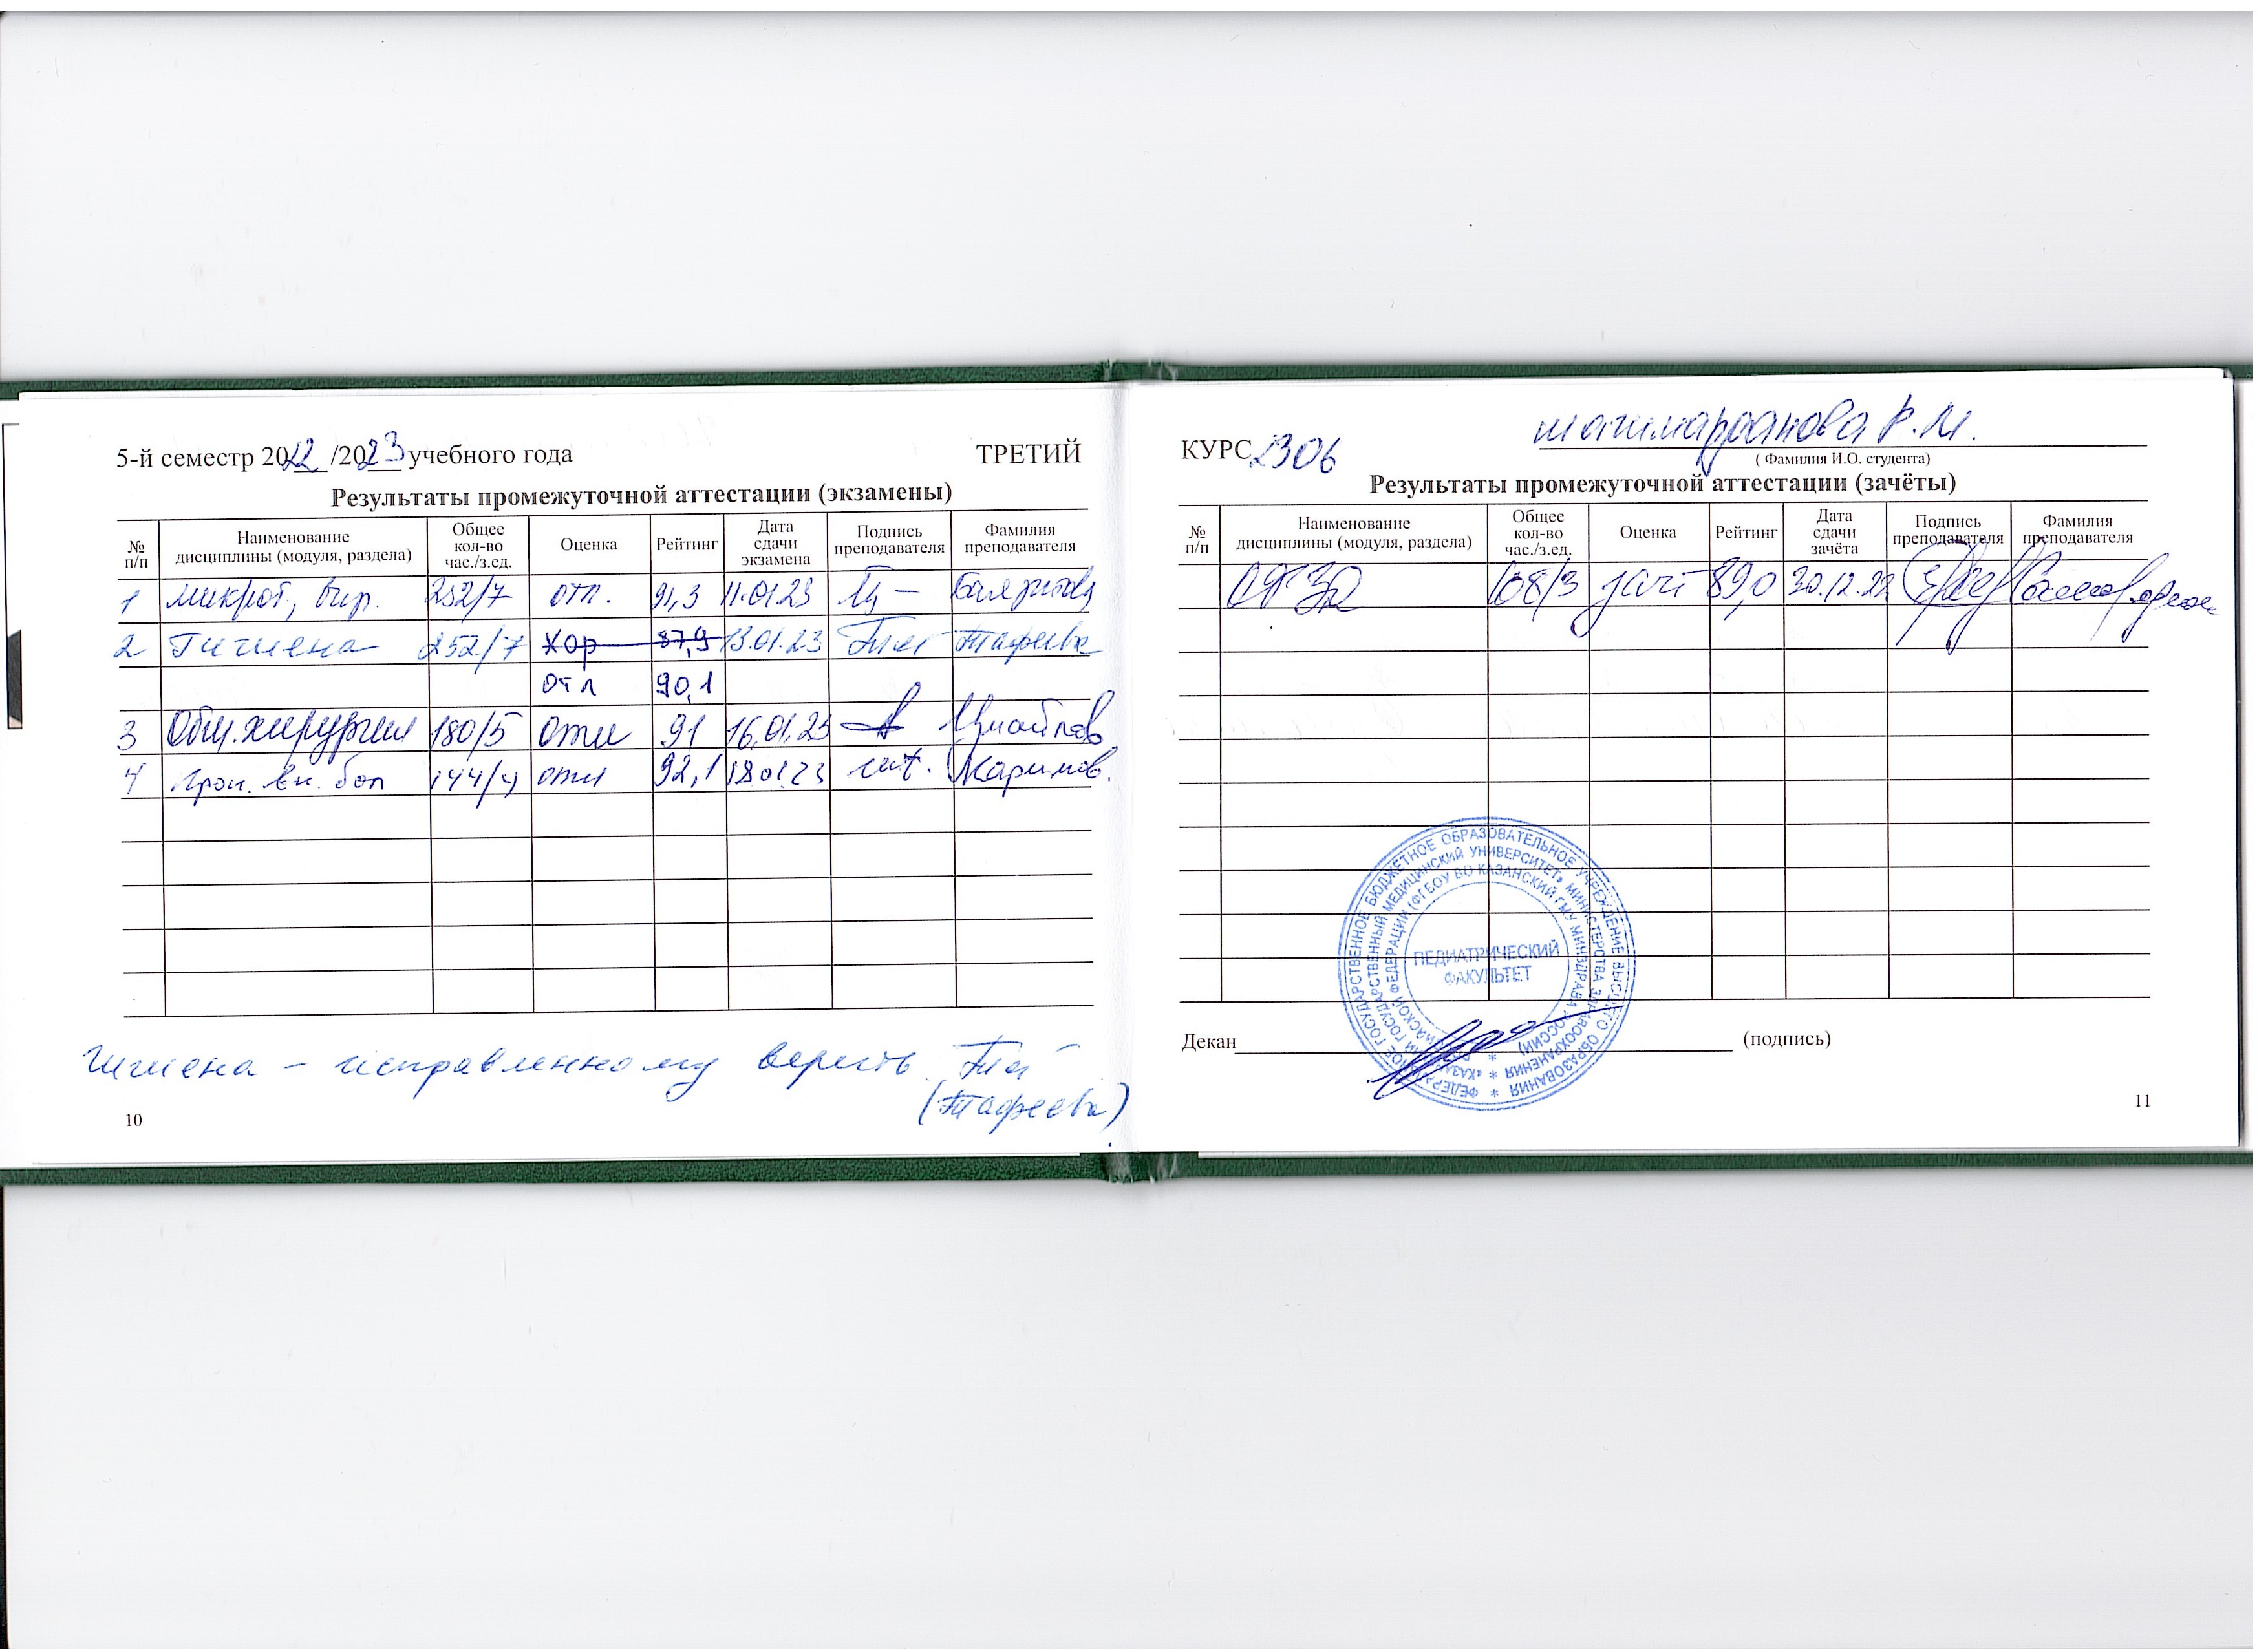 5-й семестр 2022/2023 учебного года ТРЕТИЙ
Результаты промежуточной аттестации (экзамены)
№ п/п Наименование дисциплины (модуля, раздела) Общее кол-во час./з.ед. Оценка Рейтинг Дата сдачи экзамена Подпись преподавателя Фамилия преподавателя
1 микроб., вир. 252/7 отл. 91,3 11.01.23
2 Гигиена 252/7 хор 87,9 13.01.23 Тафеева
отл 90,1
3 Общ. хирургия 180/5 отл 91 16.01.23 Измайлов
4 Проп. вн. бол 144/4 отл 92,1 18.01.23 Каримов.
Гигиена – исправленному верить
(Тафеева)
10
КУРС 2306 Шагимарданова Р.М.
( Фамилия И.О. студента)
Результаты промежуточной аттестации (зачёты)
№ п/п Наименование дисциплины (модуля, раздела) Общее кол-во час./з.ед. Оценка Рейтинг Дата сдачи зачёта Подпись преподавателя Фамилия преподавателя
108/3 зачт 89,0 30.12.22
ФЕДЕРАЛЬНОЕ ГОСУДАРСТВЕННОЕ БЮДЖЕТНОЕ ОБРАЗОВАТЕЛЬНОЕ УЧРЕЖДЕНИЕ ВЫСШЕГО ОБРАЗОВАНИЯ
«КАЗАНСКИЙ ГОСУДАРСТВЕННЫЙ МЕДИЦИНСКИЙ УНИВЕРСИТЕТ» МИНИСТЕРСТВА ЗДРАВООХРАНЕНИЯ
РОССИЙСКОЙ ФЕДЕРАЦИИ (ФГБОУ ВО КАЗАНСКИЙ ГМУ МИНЗДРАВА РОССИИ)
ПЕДИАТРИЧЕСКИЙ
ФАКУЛЬТЕТ
Декан (подпись)
11